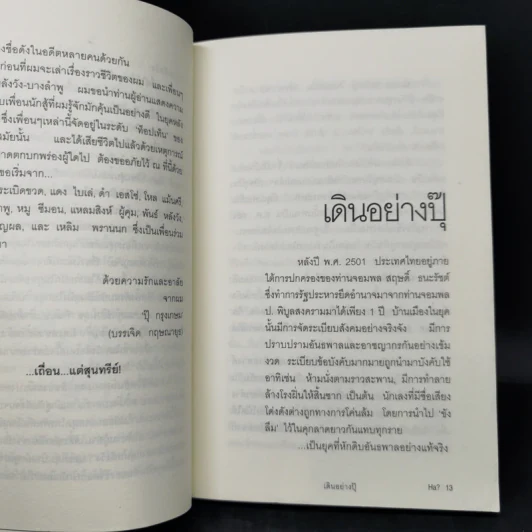 งชื่อดังในอดีตหลายคนด้วยกัน
ก่อนที่ผมจะเล่าเรื่องราวชีวิตของผม และเพื่อนๆ
ลังวัง-บางลำพู ผมขอนำท่านผู้อ่านแสดงความ
บเพื่อนนักสู้ที่ผมรู้จักมักคุ้นเป็นอย่างดี ในยุคหลัง
ซึ่งเพื่อนๆเหล่านี้จัดอยู่ในระดับ 'ท็อปเท็น' ของ
มัยนั้น และได้เสียชีวิตไปแล้วด้วยเหตุการณ์
าดตกบกพร่องผู้ใดไป ต้องขออภัยไว้ ณ ที่นี้ด้วย
ขอเริ่มจาก...
ระเบิดขวด, แดง ไบเล่, ดำ เอสโซ่, โหล แม้นศรี,
าพู, หมู ซีมอน, แหลมสิงห์ ผู้คุม, พันธ์ หลังวัง,
ญผล, และ เหลิม พรานนก ซึ่งเป็นเพื่อนร่วม
มา
ด้วยความรักและอาลัย
จากผม
ปุ๊ กรุงเกษม
(บรรเจิด กฤษณายุธ)
...เถื่อน...แต่สุนทรีย์!
เดินอย่างปุ๊
หลังปี พ.ศ. 2501 ประเทศไทยอยู่ภาย
ใต้การปกครองของท่านจอมพล สฤษดิ์ ธนะรัชต์
ซึ่งทำการรัฐประหารยึดอำนาจมาจากท่านจอมพล
ป. พิบูลสงครามมาได้เพียง 1 ปี บ้านเมืองในยุค
นั้นมีการจัดระเบียบสังคมอย่างจริงจัง มีการ
ปราบปรามอันธพาลและอาชญากรกันอย่างเข้ม
งวด ระเบียบข้อบังคับมากมายถูกนำมาบังคับใช้
อาทิเช่น ห้ามนั่งตามราวสะพาน, มีการทำลาย
ล้างโรงฝิ่นให้สิ้นซาก เป็นต้น นักเลงที่มีชื่อเสียง
โด่งดังต่างถูกทางการโค่นล้ม โดยการนำไป 'ขัง
ลืม' ไว้ในคุกลาดยาวกันแทบทุกราย
...เป็นยุคที่หักดิบอันธพาลอย่างแท้จริง
เดินอย่างปุ๊ Ha? 13